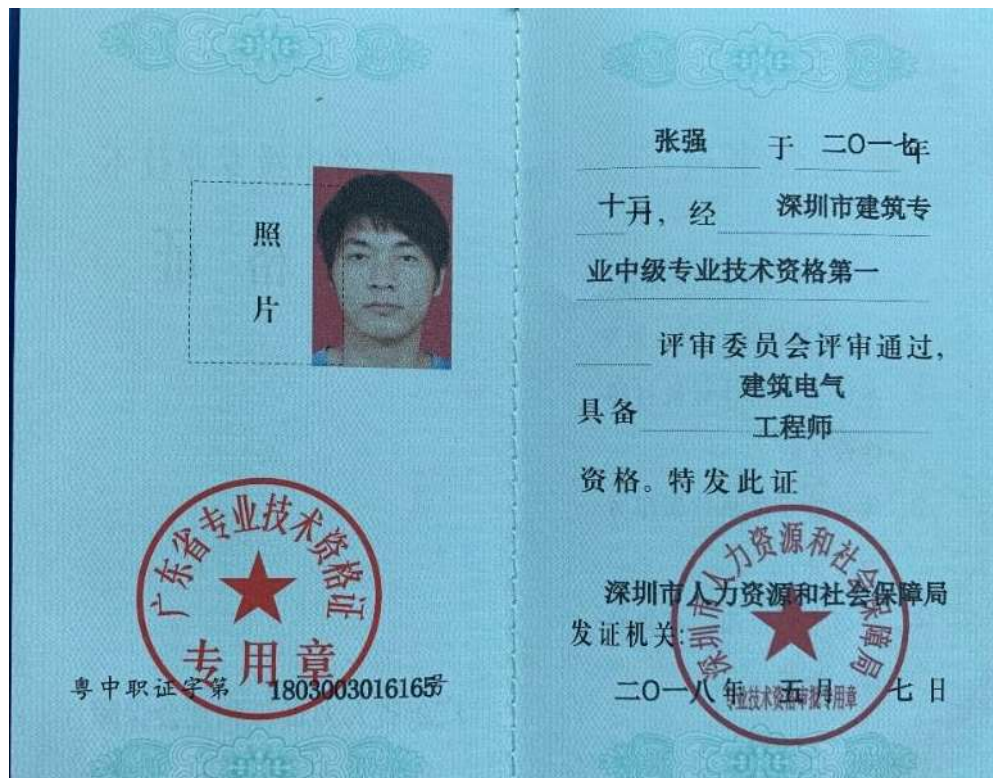 照
片
广东省专业技术资格证
专用章
粤中职证字第 1803003016165号
张强 于 二〇一七年
十二月，经 深圳市建筑专
业中级专业技术资格第一
评审委员会评审通过，
具备 建筑电气
工程师
资格。特发此证
深圳市人力资源和社会保障局
深圳市人力资源和社会保障局
发证机关：
二〇一八年 五月 七日
专业技术资格审批专用章